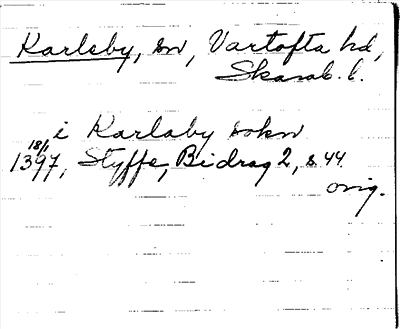 Karleby, sn, Vartofta hd,
Skarab. l.
i Karlaby sokn
18/1
1397, Styffe, Bidrag 2, s. 44
orig.